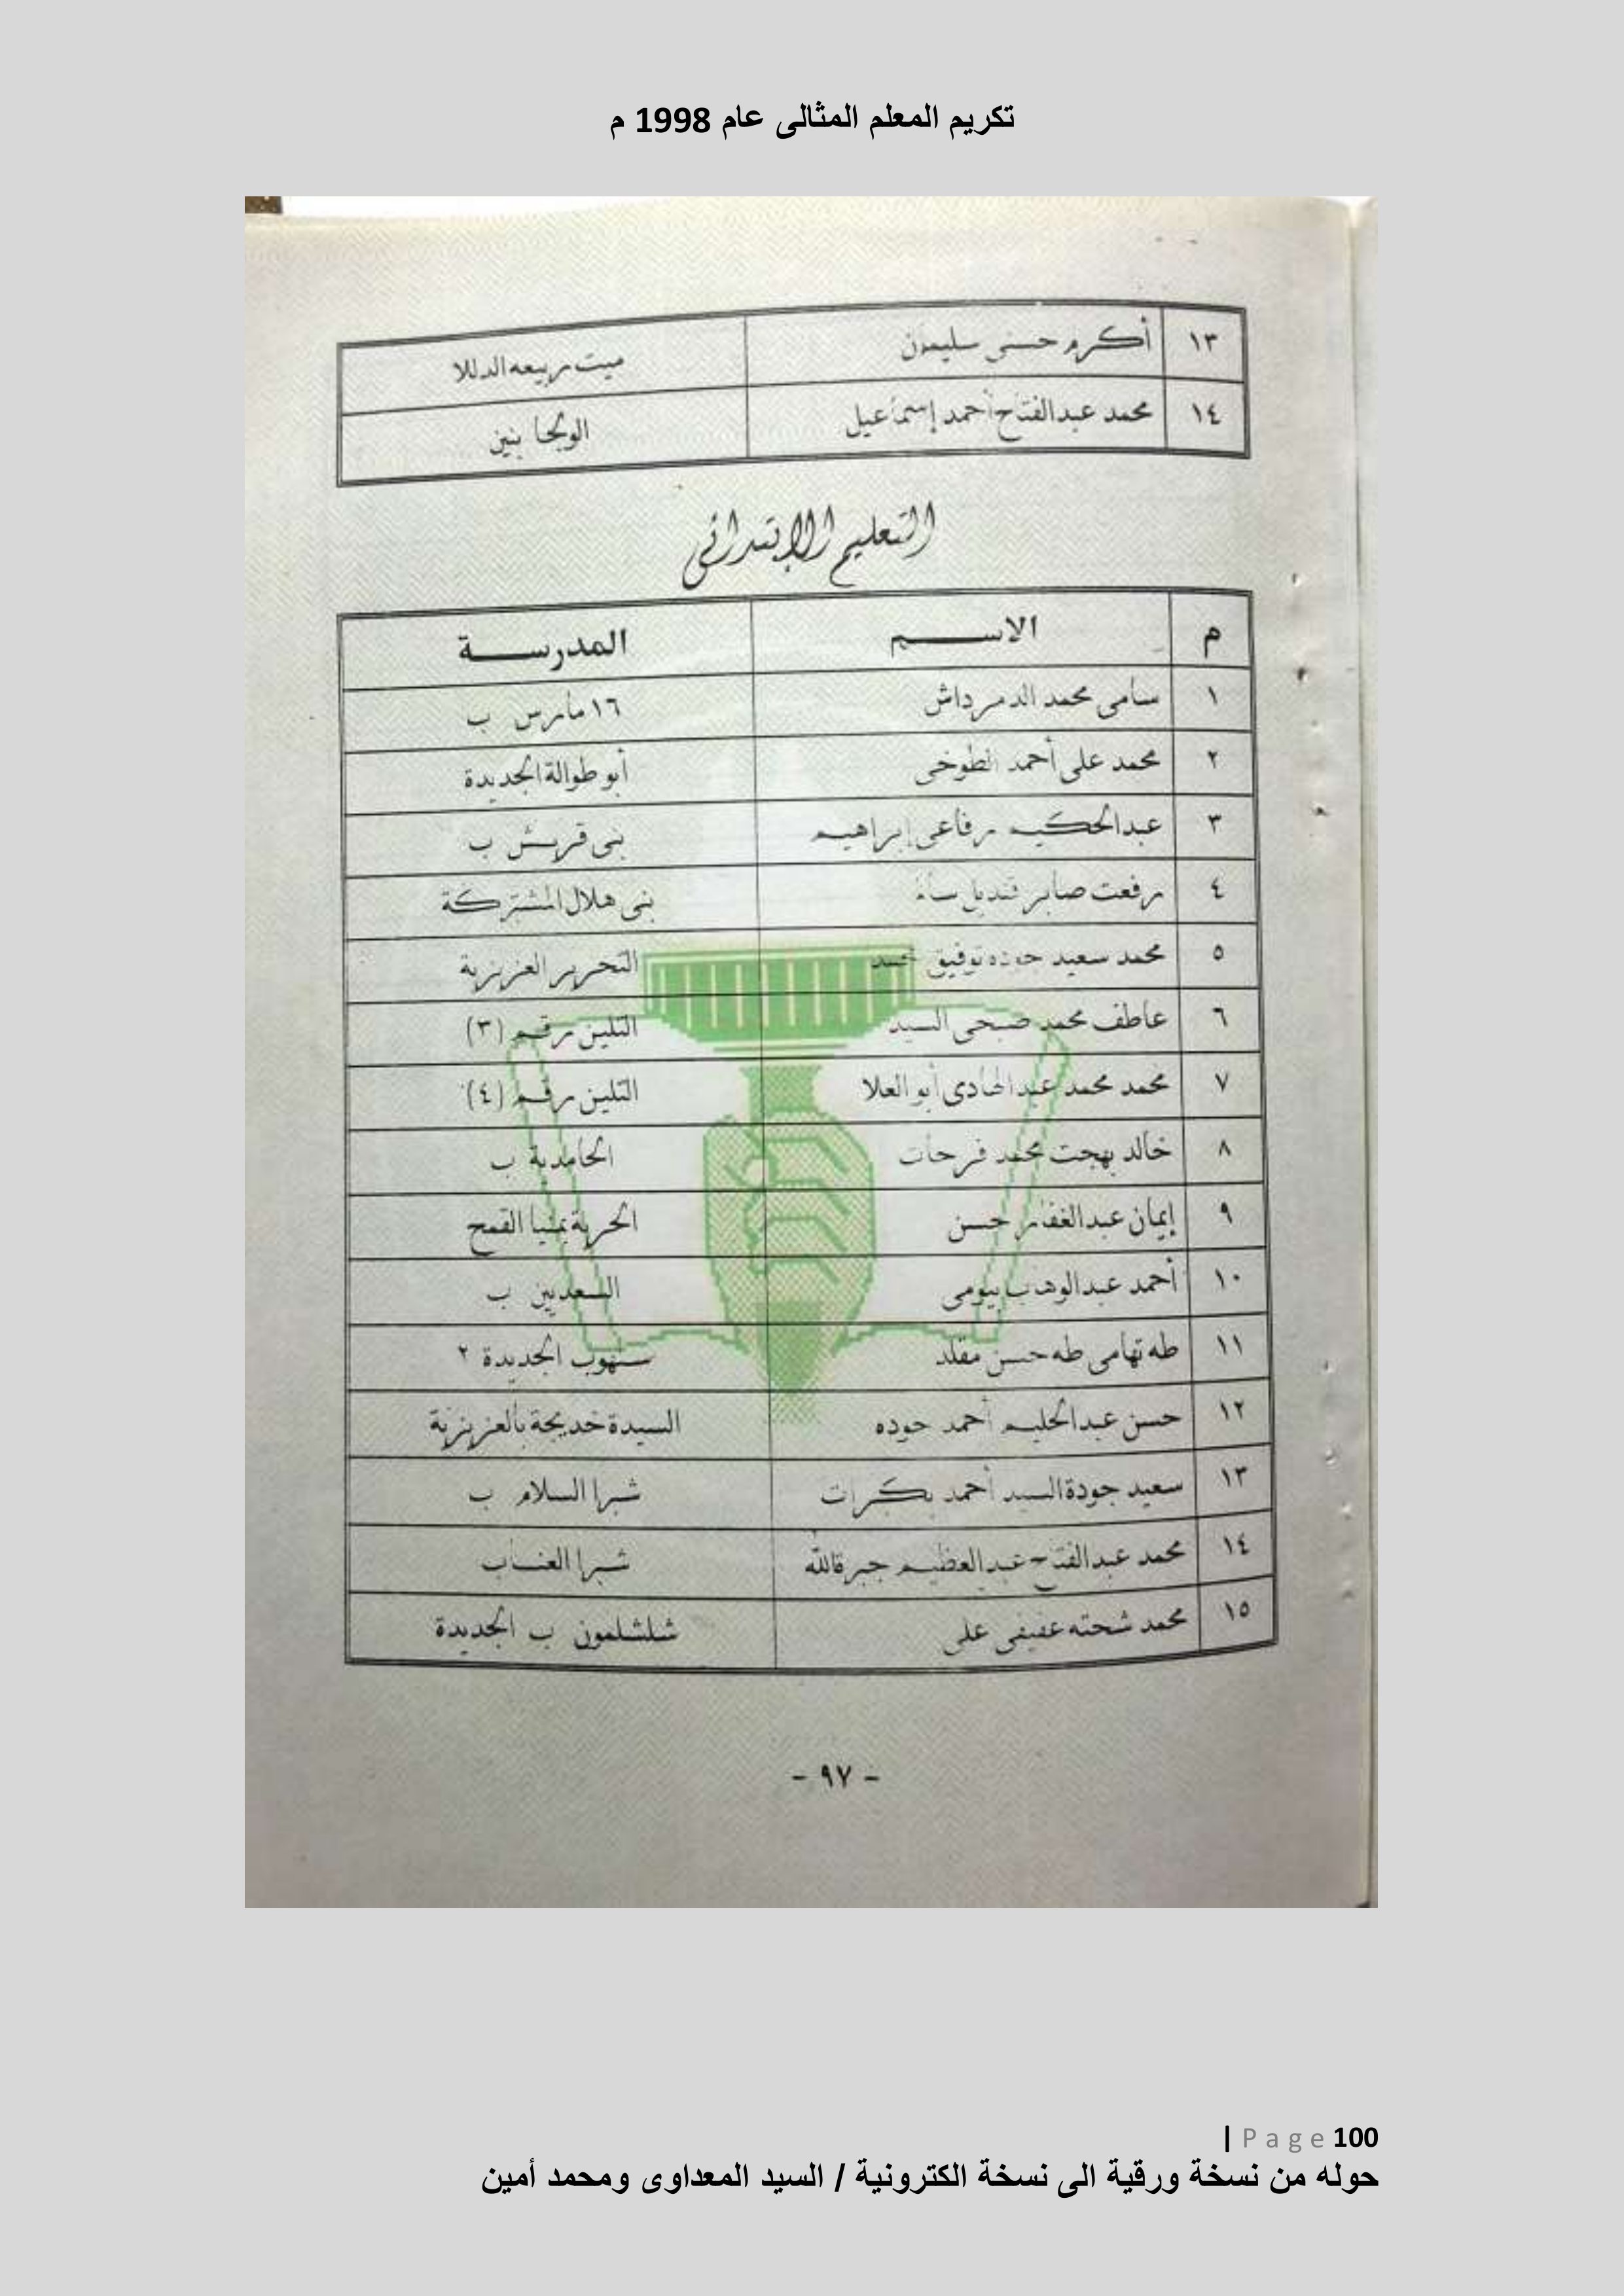 تكريم المعلم المثالى عام 1998 م
١٣ أكرم حسنى سليمون ميت ربيعه الدللا
١٤ محمد عبدالفتاح أحمد إسماعيل الولجا بنين
التعليم الإبتدائى
م الاســـم المدرســـة
١ سامى محمد الدمرداش ١٦ مارس ب
٢ محمد على أحمد الطوخى أبو طوالة الجديدة
٣ عبدالحكيم رفاعى إبراهيم بنى قريش ب
٤ رفعت صابر قنديل بنى هلال المشتركة
٥ محمد سعيد حوده توفيق التحرير العزيزية
٦ عاطف محمد صبحى السيد التلين رقم (٣)
٧ محمد محمد عبدالهادى أبو العلا التلين رقم (٤)
٨ خالد بهجت محمد فرحات الحامدية ب
٩ إيمان عبدالغفار حسن الحرية بمنيا القمح
١٠ أحمد عبدالوهاب بيومى السعديين ب
١١ طه تهامى طه حسن مقلد سنهوب الجديدة ٢
١٢ حسن عبدالحليم أحمد حوده السيدة خديجة بالعزيزية
١٣ سعيد جودة السيد أحمد بكرات شبرا السلام ب
١٤ محمد عبدالفتاح عبدالعظيم جبرقالله شبرا العناب
١٥ محمد شحته عفيفى على شلشلمون ب الجديدة
- ٩٧ -
| Page 100
حوله من نسخة ورقية الى نسخة الكترونية / السيد المعداوى ومحمد أمين